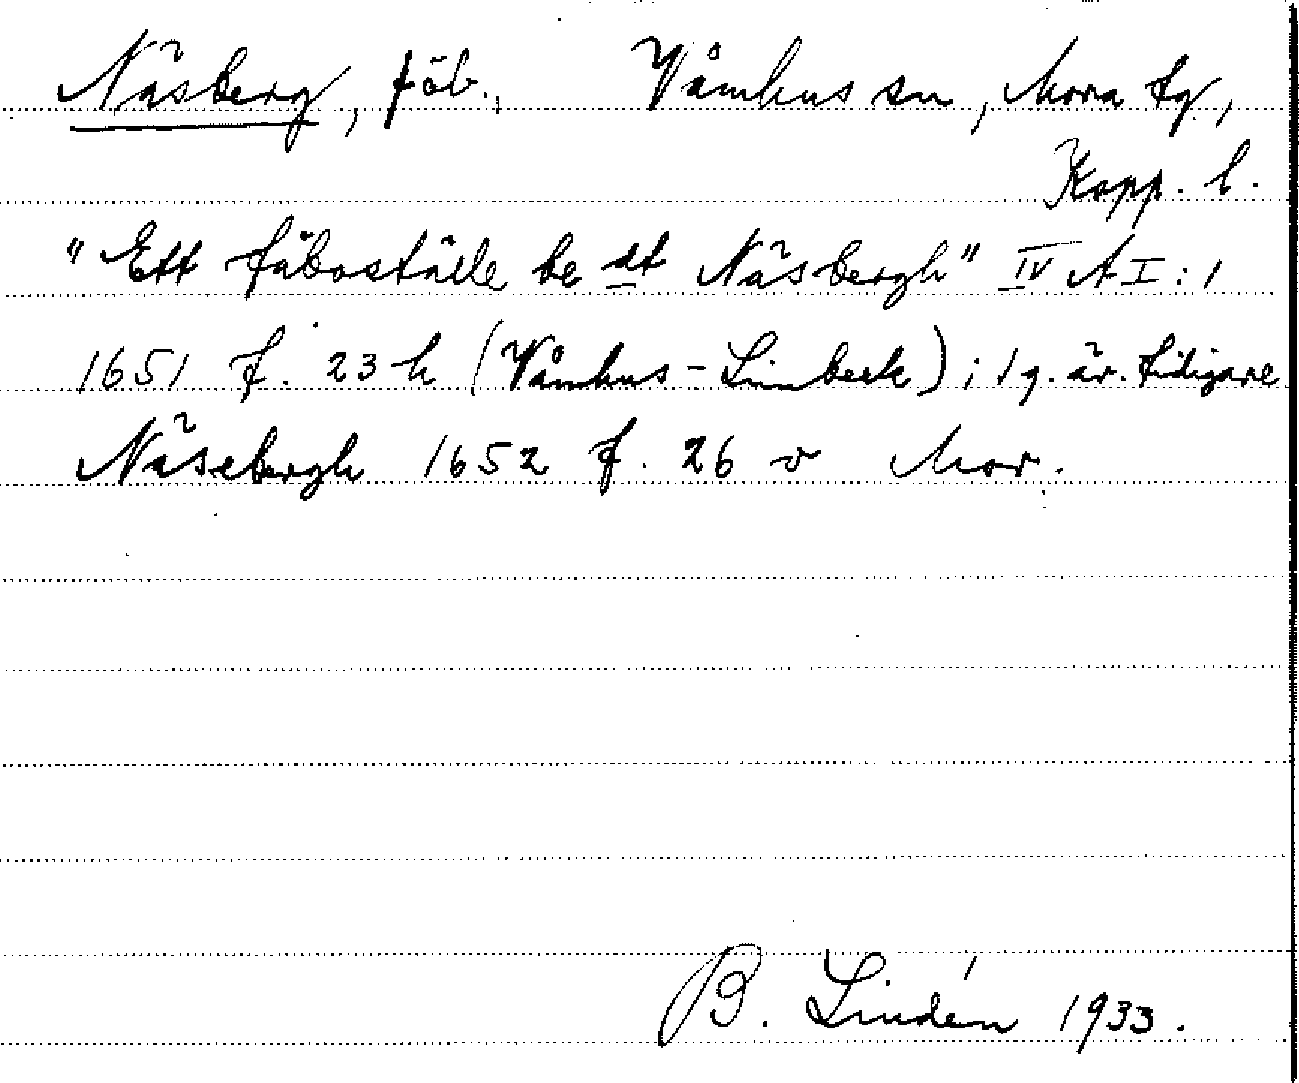 Näsberg, fäb., Våmhus sn, Mora tg,
Kopp. l.
"Ett fäboställe be dt Näsbergh" IV A I : 1
1651 f. 23 h (Våmhus - Limbeck) ; 1 g. är. tidigare
Näsebergh 1652 f. 26 v Mor.
B. Lindén 1933.